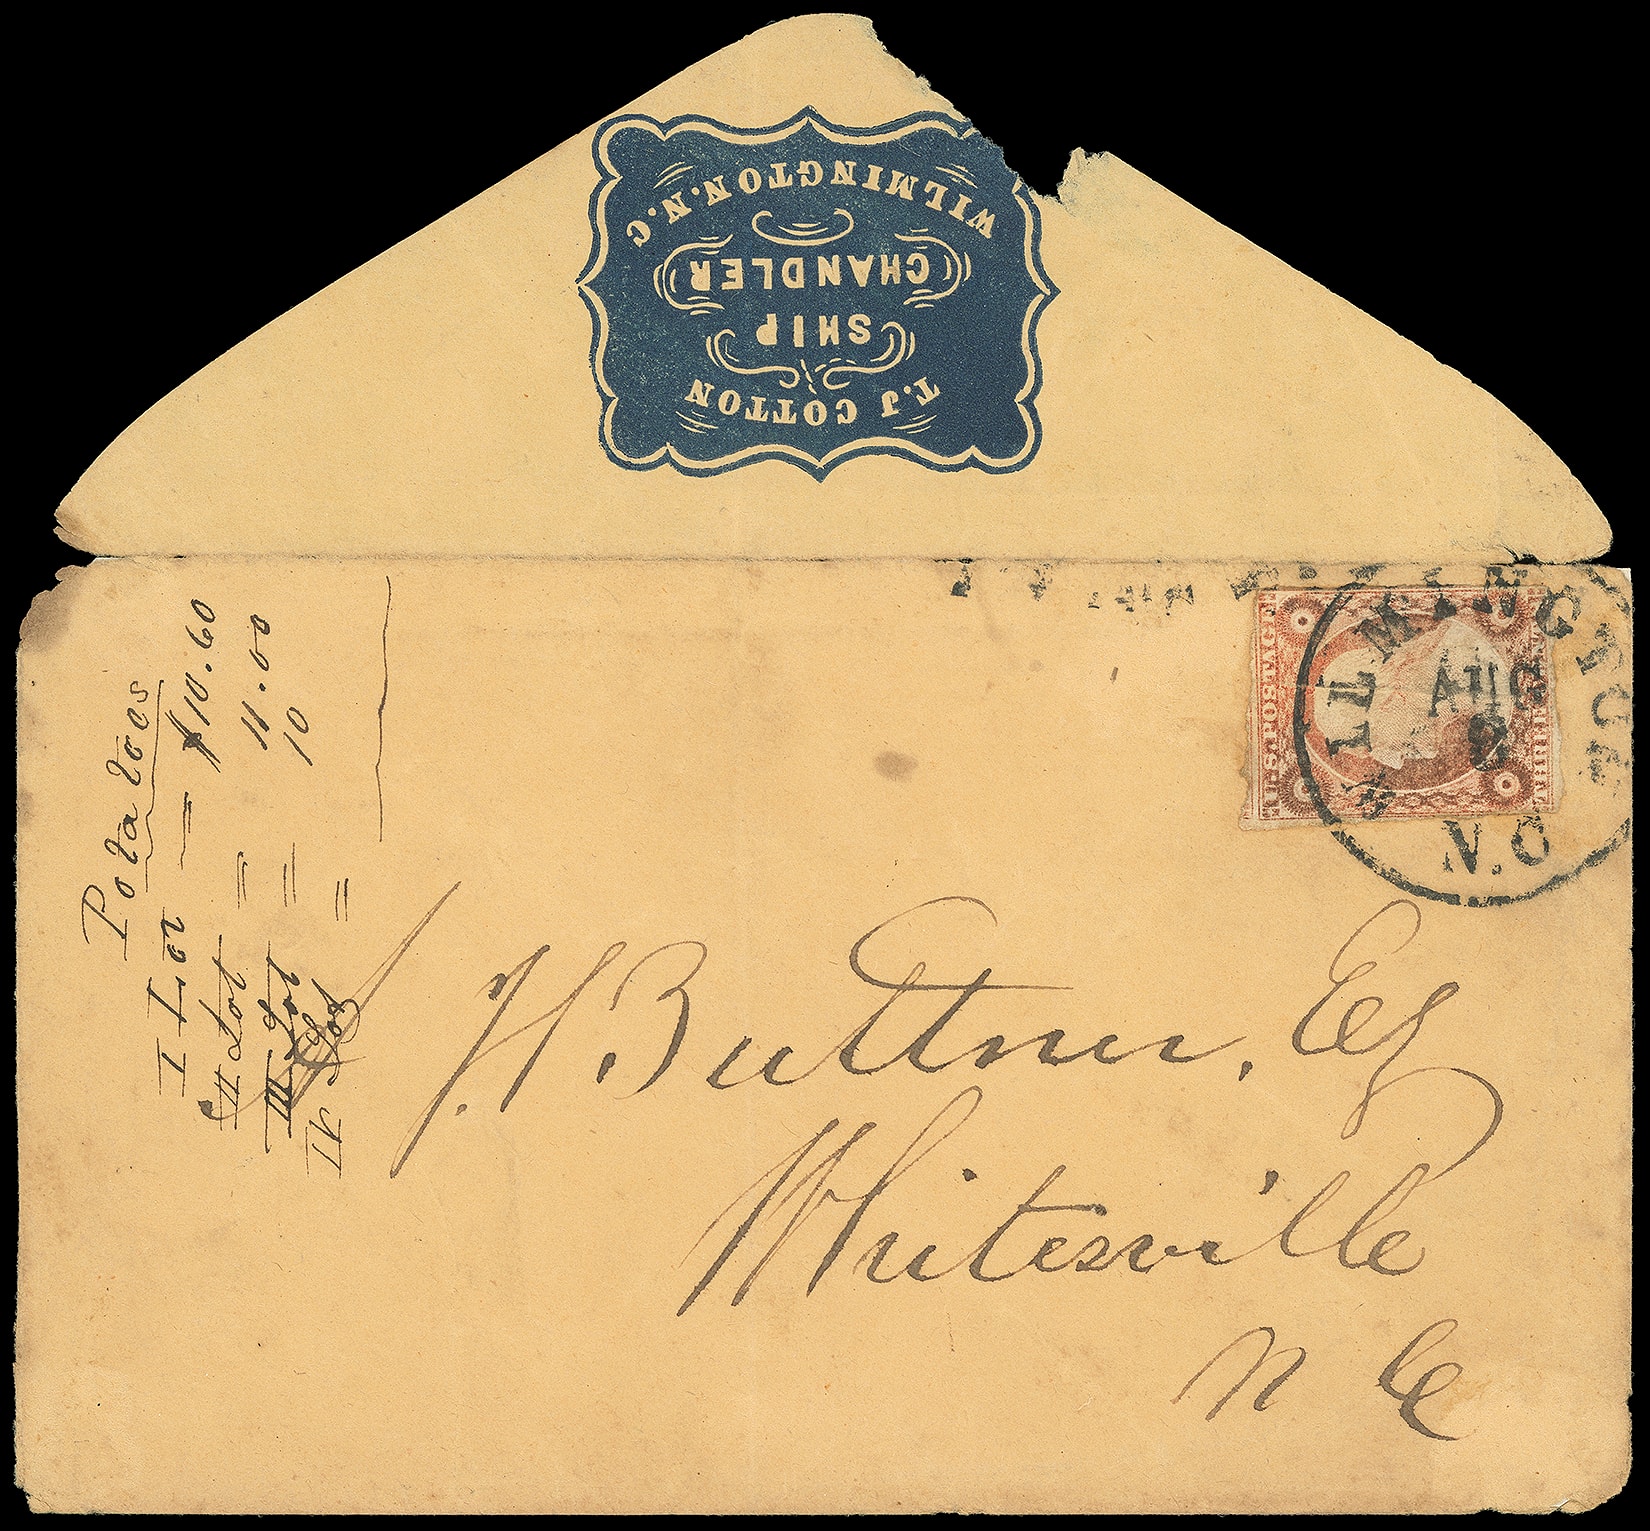 T.J COTTON
SHIP
CHANDLER
WILMINGTON.N.C
U.S. POSTAGE
WILMINGTON
AUG
8
N.C
Potatoes
I Lot — $10.60
II Lot = 11.00
III Lot = 10
IV Lot =
J. H Buttner, Esq
Whitesville
N C